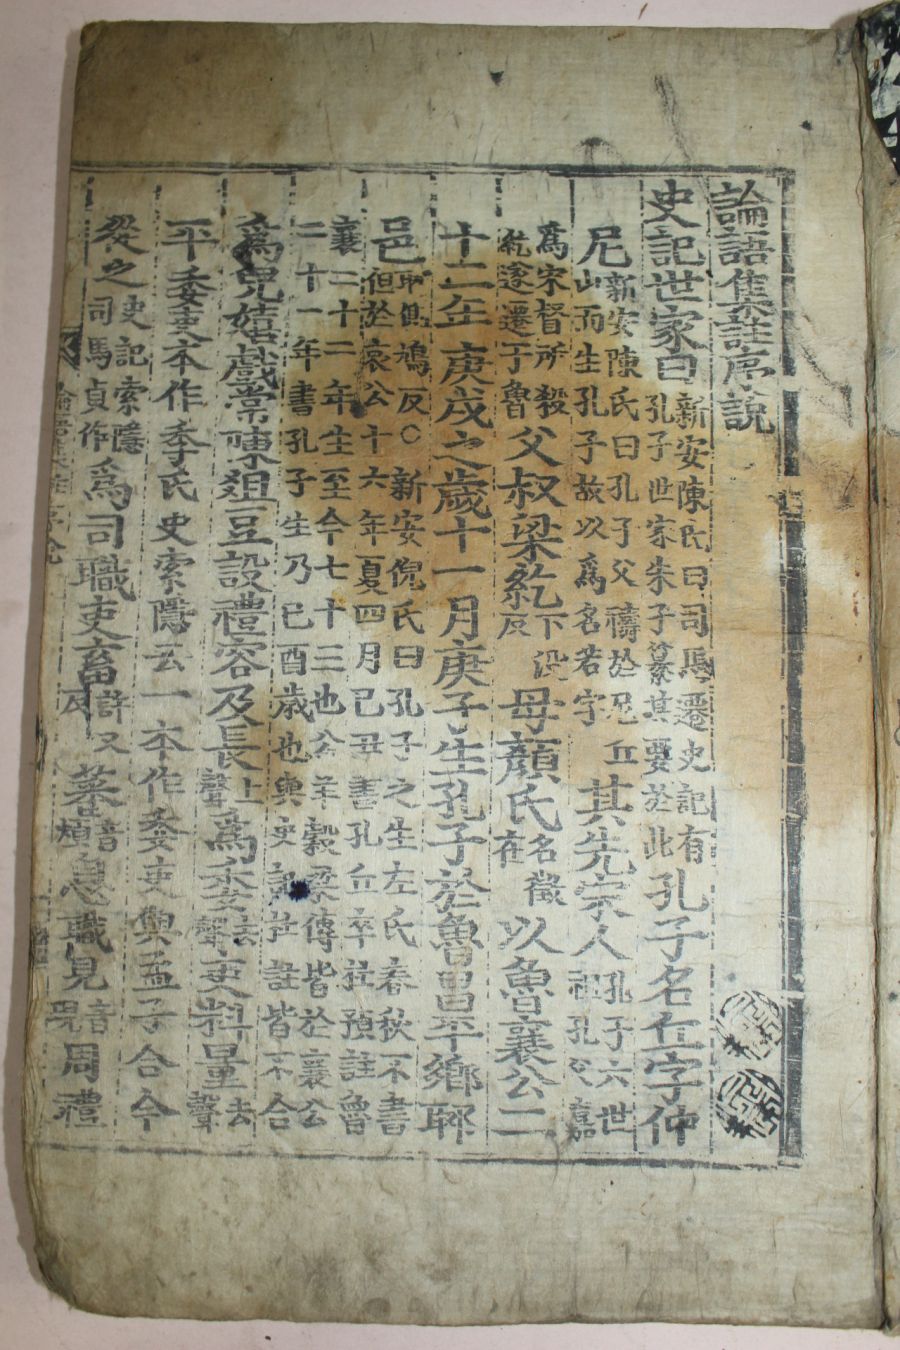 論語集註序說
史記世家曰新安陳氏曰司馬遷史記有孔子世家朱子纂其要於此孔子名丘字仲
尼新安陳氏曰孔子父禱於尼丘山而生孔子故以爲名若字其先宋人孔子六世祖孔父嘉
爲宋督所殺遂遷于魯父叔梁紇下沒反母顏氏名徵在以魯襄公二
十二年庚戌之歲十一月庚子生孔子於魯昌平鄉陬
邑陬側鳩反○新安倪氏曰孔子之生左氏春秋不書但於哀公十六年夏四月己丑書孔丘卒杜預註魯
襄二十二年生至今七十三也公羊穀梁傳皆於襄公二十一年書孔子生乃己酉歲也與史記杜註皆不合
爲兒嬉戲常陳俎豆設禮容及長上聲爲委去聲吏料量去聲
平委吏本作季氏史索隱云一本作委吏與孟子合今
從之史記索隱司馬貞作爲司職吏畜許又反蕃音煩息職見音現周禮